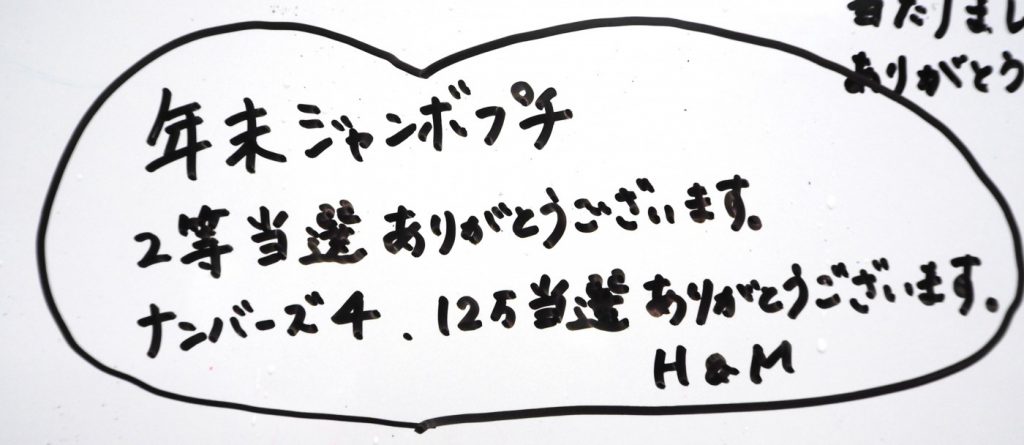 当たりまし
ありがとう
年末ジャンボプチ
2等当選ありがとうございます。
ナンバーズ4、12万当選ありがとうございます。
H&M